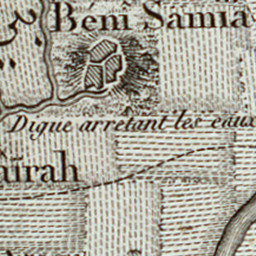 Beni Samia
Digue arrêtant les eaux
ūrah